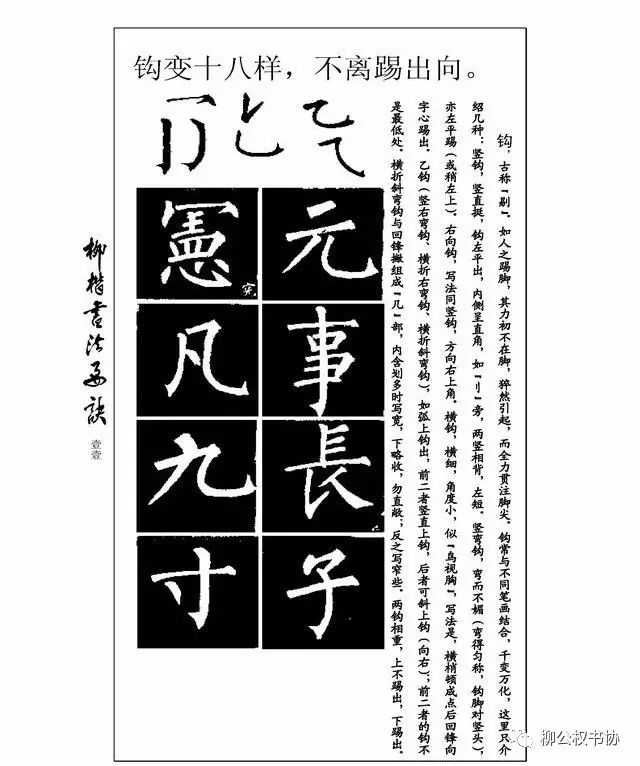 钩变十八样，不离踢出向。
钩，古称“剔”。如人之踢脚，其力初不在脚，猝然引起，而全力贯注脚尖。钩常与不同笔画结合，千变万化，这里只介
绍几种：竖钩，竖直挺，钩左平出，内侧呈直角，如“刂”旁，两竖相背，左短。竖弯钩，弯而不媚（弯得匀称，钩脚对竖头），
亦左平踢（或稍左上）。右向钩，写法同竖钩，方向右上角。横钩，横细，角度小，似“鸟视胸”，写法是，横梢顿成点后回锋向
字心踢出。乙钩（竖右弯钩、横折右弯钩、横折斜弯钩），如弧上钩出，前二者竖直上钩，后者可斜上钩（向右）；前二者的钩不
是最低处。横折斜弯钩与回锋撇组成“几”部，内含划多时写宽，下略收，勿直敞；反之写窄些。两钩相重，上不踢出，下踢出。
元
事
長
子
憲
宪
凡
九
寸
柳楷书法要诀
壹壹
柳公权书协